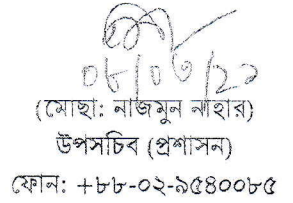 ০৮/০৬/২০
(মোছা: নাজমুন নাহার)
উপসচিব (প্রশাসন)
ফোন: +৮৮-০২-৯৫৪০০৮৫